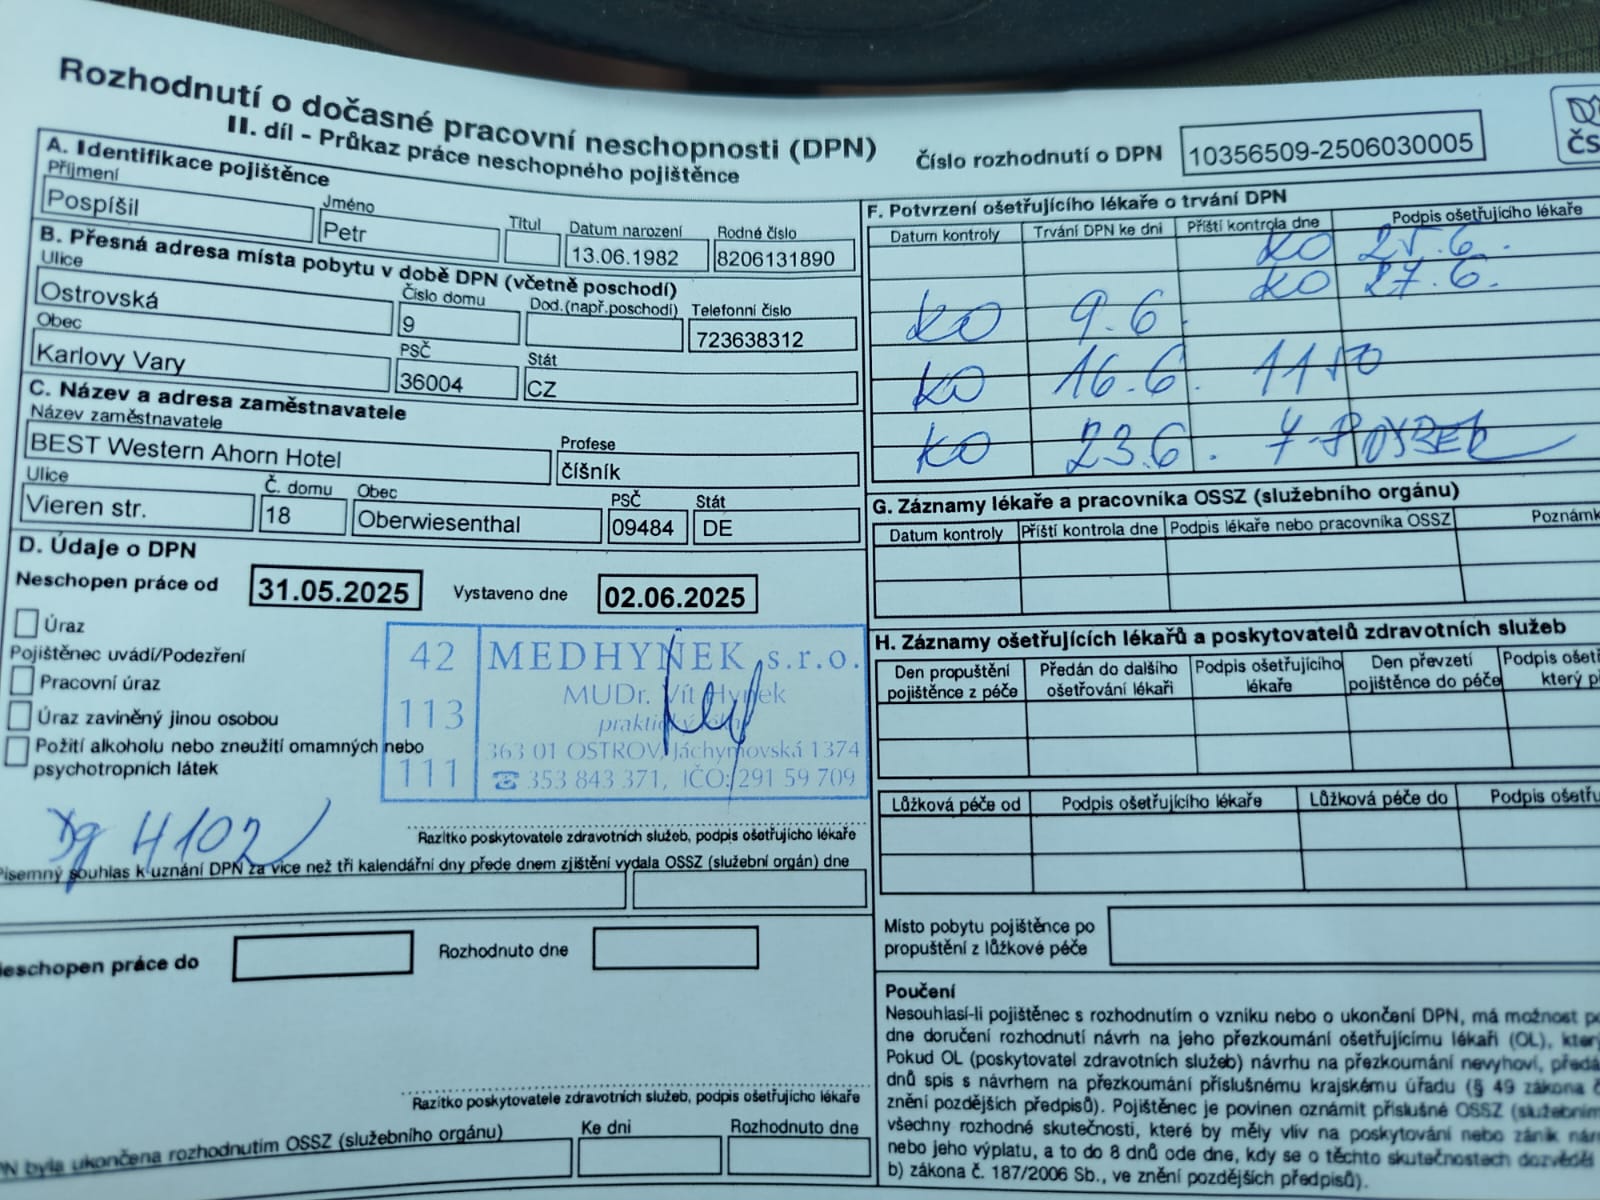 Rozhodnutí o dočasné pracovní neschopnosti (DPN)
II. díl - Průkaz práce neschopného pojištěnce
Číslo rozhodnutí o DPN 10356509-2506030005
A. Identifikace pojištěnce
Příjmení Jméno Titul Datum narození Rodné číslo
Pospíšil Petr 13.06.1982 8206131890
B. Přesná adresa místa pobytu v době DPN (včetně poschodí)
Ulice Číslo domu Dod.(např.poschodí) Telefonní číslo
Ostrovská 9 723638312
Obec PSČ Stát
Karlovy Vary 36004 CZ
C. Název a adresa zaměstnavatele
Název zaměstnavatele Profese
BEST Western Ahorn Hotel číšník
Ulice Č. domu Obec PSČ Stát
Vieren str. 18 Oberwiesenthal 09484 DE
D. Údaje o DPN
Neschopen práce od 31.05.2025 Vystaveno dne 02.06.2025
Úraz
Pojištěnec uvádí/Podezření
Pracovní úraz
Úraz zaviněný jinou osobou
Požití alkoholu nebo zneužití omamných nebo
psychotropních látek
42 MEDHYNEK s.r.o.
MUDr. Vít Hynek
113
363 01 OSTROV, Jáchymovská 1374
111 ☎ 353 843 371, IČO: 291 59 709
Dg H102
Razítko poskytovatele zdravotních služeb, podpis ošetřujícího lékaře
Písemný souhlas k uznání DPN za více než tři kalendářní dny přede dnem zjištění vydala OSSZ (služební orgán) dne
Neschopen práce do Rozhodnuto dne
Razítko poskytovatele zdravotních služeb, podpis ošetřujícího lékaře
byla ukončena rozhodnutím OSSZ (služebního orgánu) Ke dni Rozhodnuto dne
F. Potvrzení ošetřujícího lékaře o trvání DPN
Datum kontroly Trvání DPN ke dni Příští kontrola dne Podpis ošetřujícího lékaře
KO 25.6.
KO 27.6.
KO 9.6.
KO 16.6. 1150
KO 23.6.
G. Záznamy lékaře a pracovníka OSSZ (služebního orgánu)
Datum kontroly Příští kontrola dne Podpis lékaře nebo pracovníka OSSZ
H. Záznamy ošetřujících lékařů a poskytovatelů zdravotních služeb
Den propuštění Předán do dalšího Podpis ošetřujícího Den převzetí Podpis
pojištěnce z péče ošetřování lékaři lékaře pojištěnce do péče který
Lůžková péče od Podpis ošetřujícího lékaře Lůžková péče do Podpis
Místo pobytu pojištěnce po
propuštění z lůžkové péče
Poučení
Nesouhlasí-li pojištěnec s rozhodnutím o vzniku nebo o ukončení DPN, má možnost
dne doručení rozhodnutí návrh na jeho přezkoumání ošetřujícímu lékaři (OL),
Pokud OL (poskytovatel zdravotních služeb) návrhu na přezkoumání nevyhoví,
dnů spis s návrhem na přezkoumání příslušnému krajskému úřadu (§ 49 zákona
znění pozdějších předpisů). Pojištěnec je povinen oznámit příslušné OSSZ
všechny rozhodné skutečnosti, které by měly vliv na poskytování nebo zánik
nebo jeho výplatu, a to do 8 dnů ode dne, kdy se o těchto skutečnostech dozvěděl
b) zákona č. 187/2006 Sb., ve znění pozdějších předpisů).